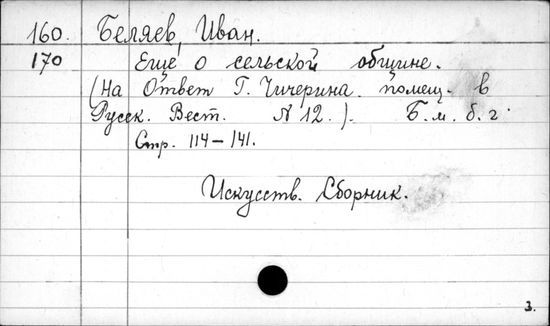 160. Беляев, Иван.
170 Еще о сельской общине.
(На Ответ Г. Чичерина помещ. в
Русск. Вест. № 12.). Б. м. б. г.
Стр. 114–141.
Искусств. Сборник.
3.